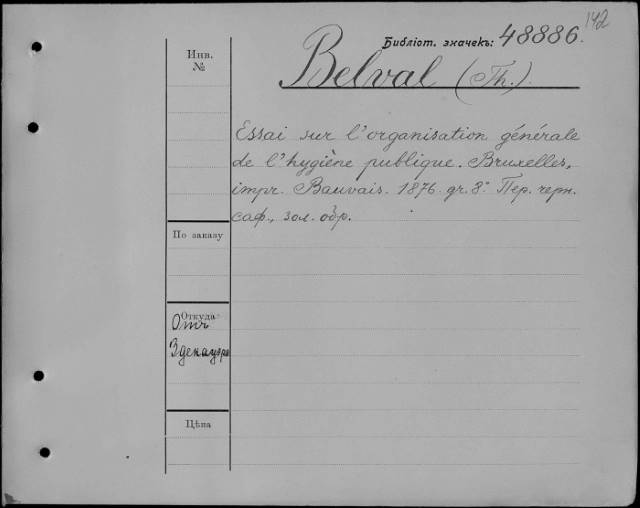 142
Библіот. значекъ: 48886.
Инв.
№
Belval (Th.)
Essai sur l'organisation générale
de l'hygiène publique. Bruxelles,
impr. Bauvais. 1876. gr. 8° Пер. черн.
саф., зол. обр.
По заказу
Откуда
Отъ
Здекауера
Цѣна